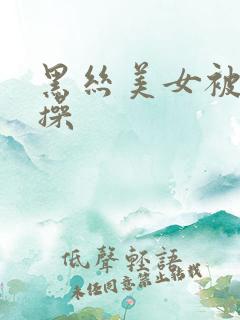 黑丝美女被
操
低聲輕語
未经同意禁止转载